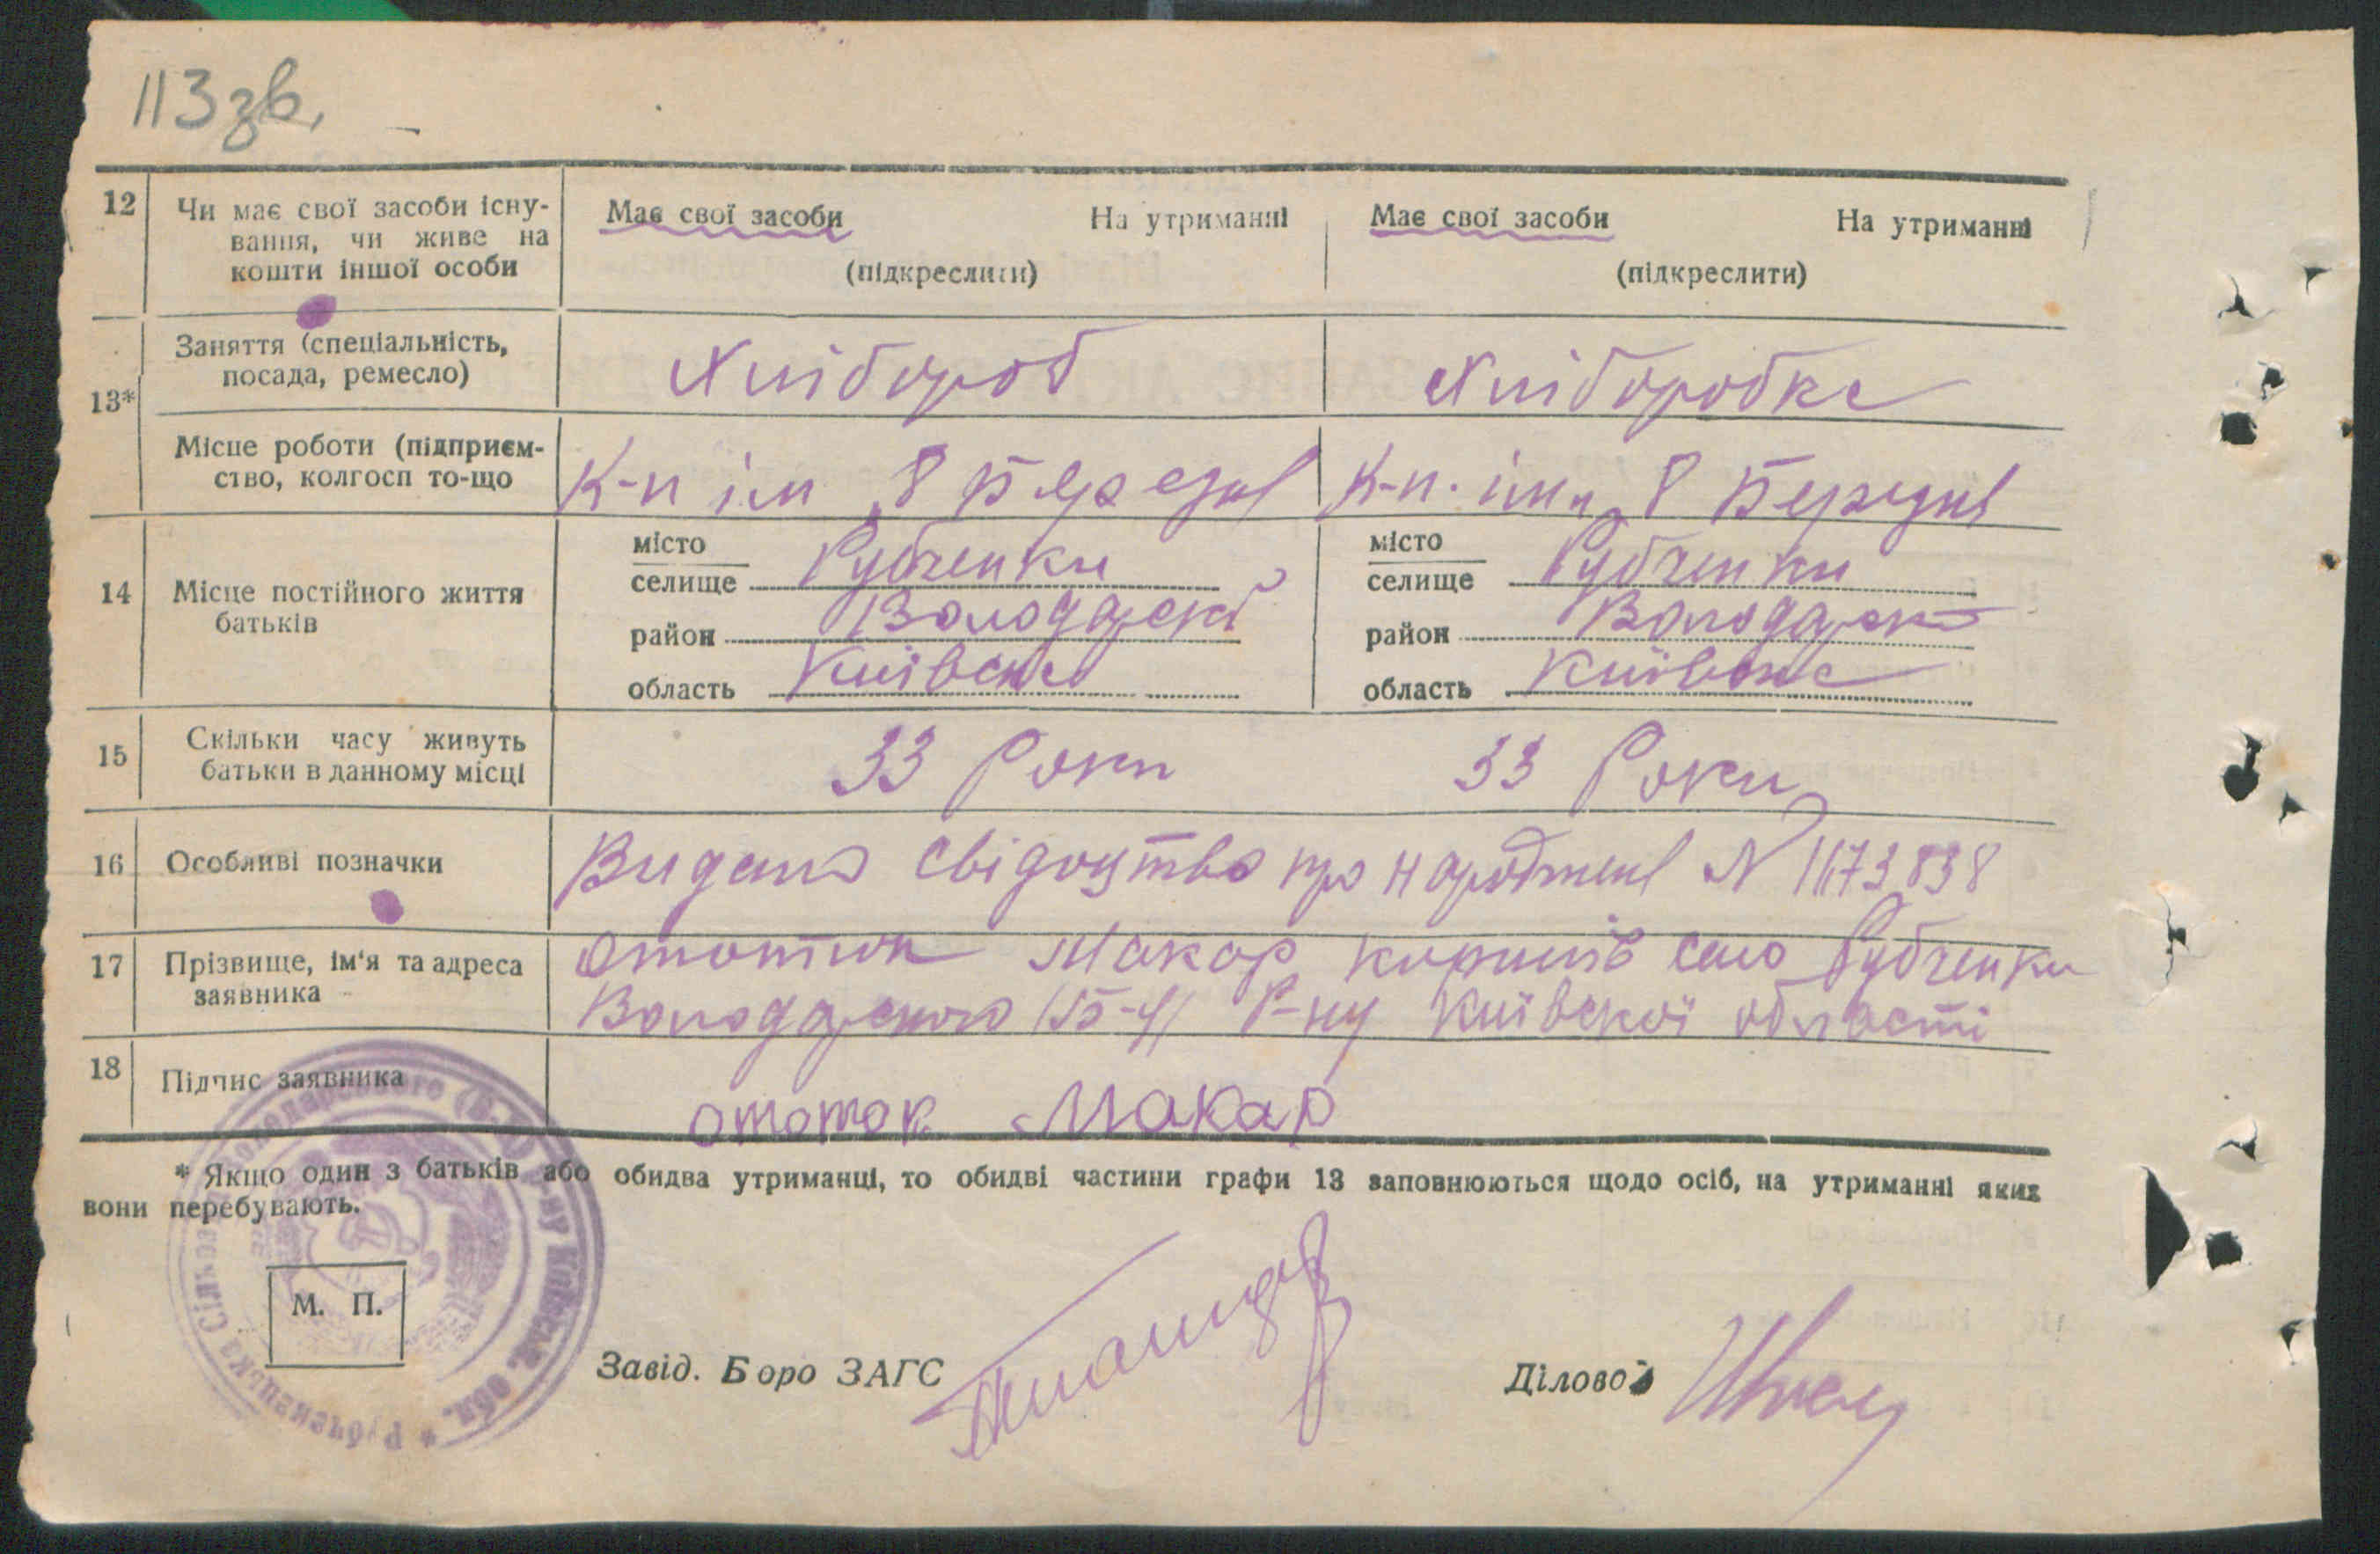 113 зв.
12 Чи має свої засоби існу- Має свої засоби На утриманні Має свої засоби На утриманні
вання, чи живе на
кошти іншої особи (підкреслити) (підкреслити)
Заняття (спеціальність, Хлібороб Хлібборобка
посада, ремесло)
13*
Місце роботи (підприєм- К-п ім 8 Березня К-п. ім. 8 Березня
ство, колгосп то-що
14 Місце постійного життя
батьків
місто
селище Рубченки
район Володарськ
область Київська
місто
селище Рубченки
район Володарськ
область Київська
15 Скільки часу живуть 33 Роки 33 Роки
батьки в данному місці
16 Особливі позначки Видано свідоцтво про народження N 1173838
17 Прізвище, ім'я та адреса Ототюк Макар село Рубченки
заявника Володарського (Б-Ц) Р-ну Київскої області
18 Підпис заявника ототюк Макар
* Якщо один з батьків або обидва утриманці, то обидві частини графи 13 заповнюються щодо осіб, на утриманні яких
вони перебувають.
М. П.
Завід. Боро ЗАГС
Діловод